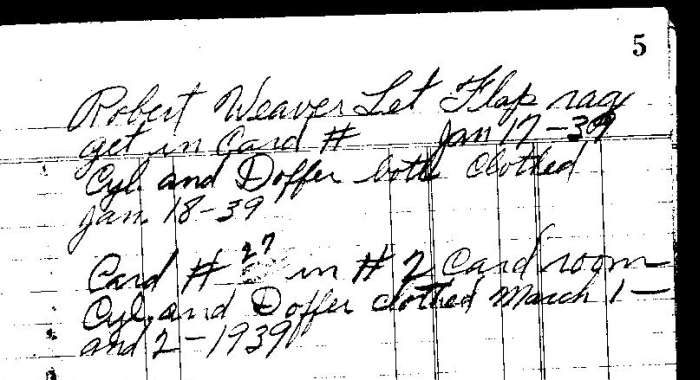 5
Robert Weaver Let Flap rag
get in Card # Jan 17-39
Cyl. and Doffer both clothed
Jan. 18-39
Card # 27 in # 2 Card room
Cyl. and Doffer clothed March 1-
and 2-1939